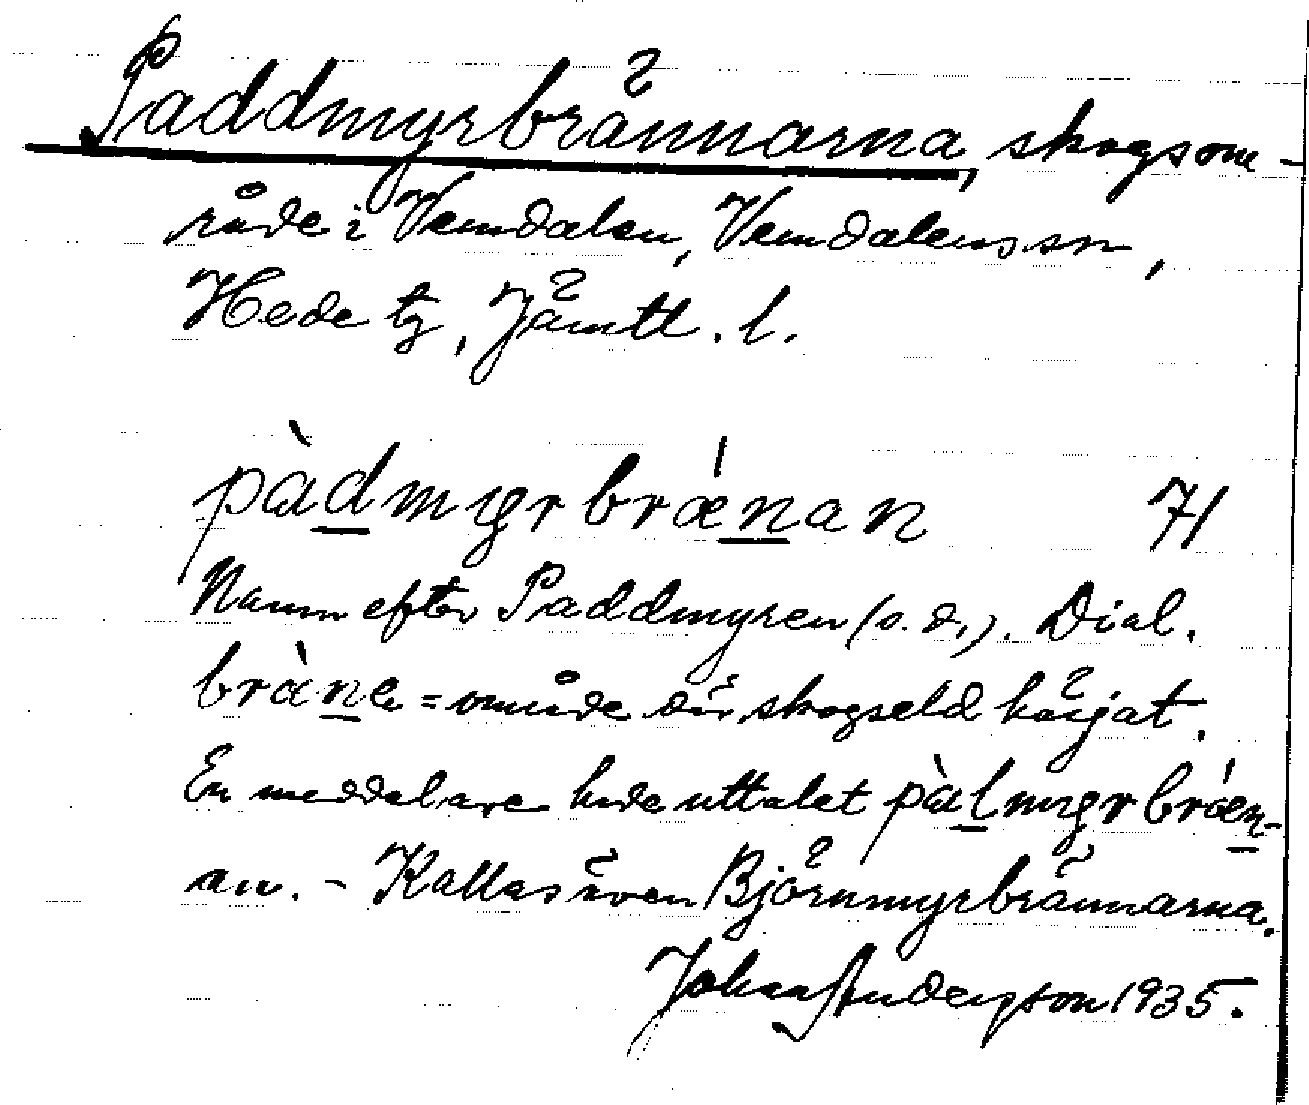 Paddmyrbrännarna, skogsom-
råde i Vemdalen, Vemdalens sn,
Hede tg, Jämtl. l.
pàdmyrbrǽnan 71
Namn efter Paddmyren (s. d.). Dial.
bràne = område där skogseld härjat.
En meddelare hade uttalet pàlmyrbrǽn-
an. - Kallas även Björnmyrbrännarna.
Johan Anderson 1935.